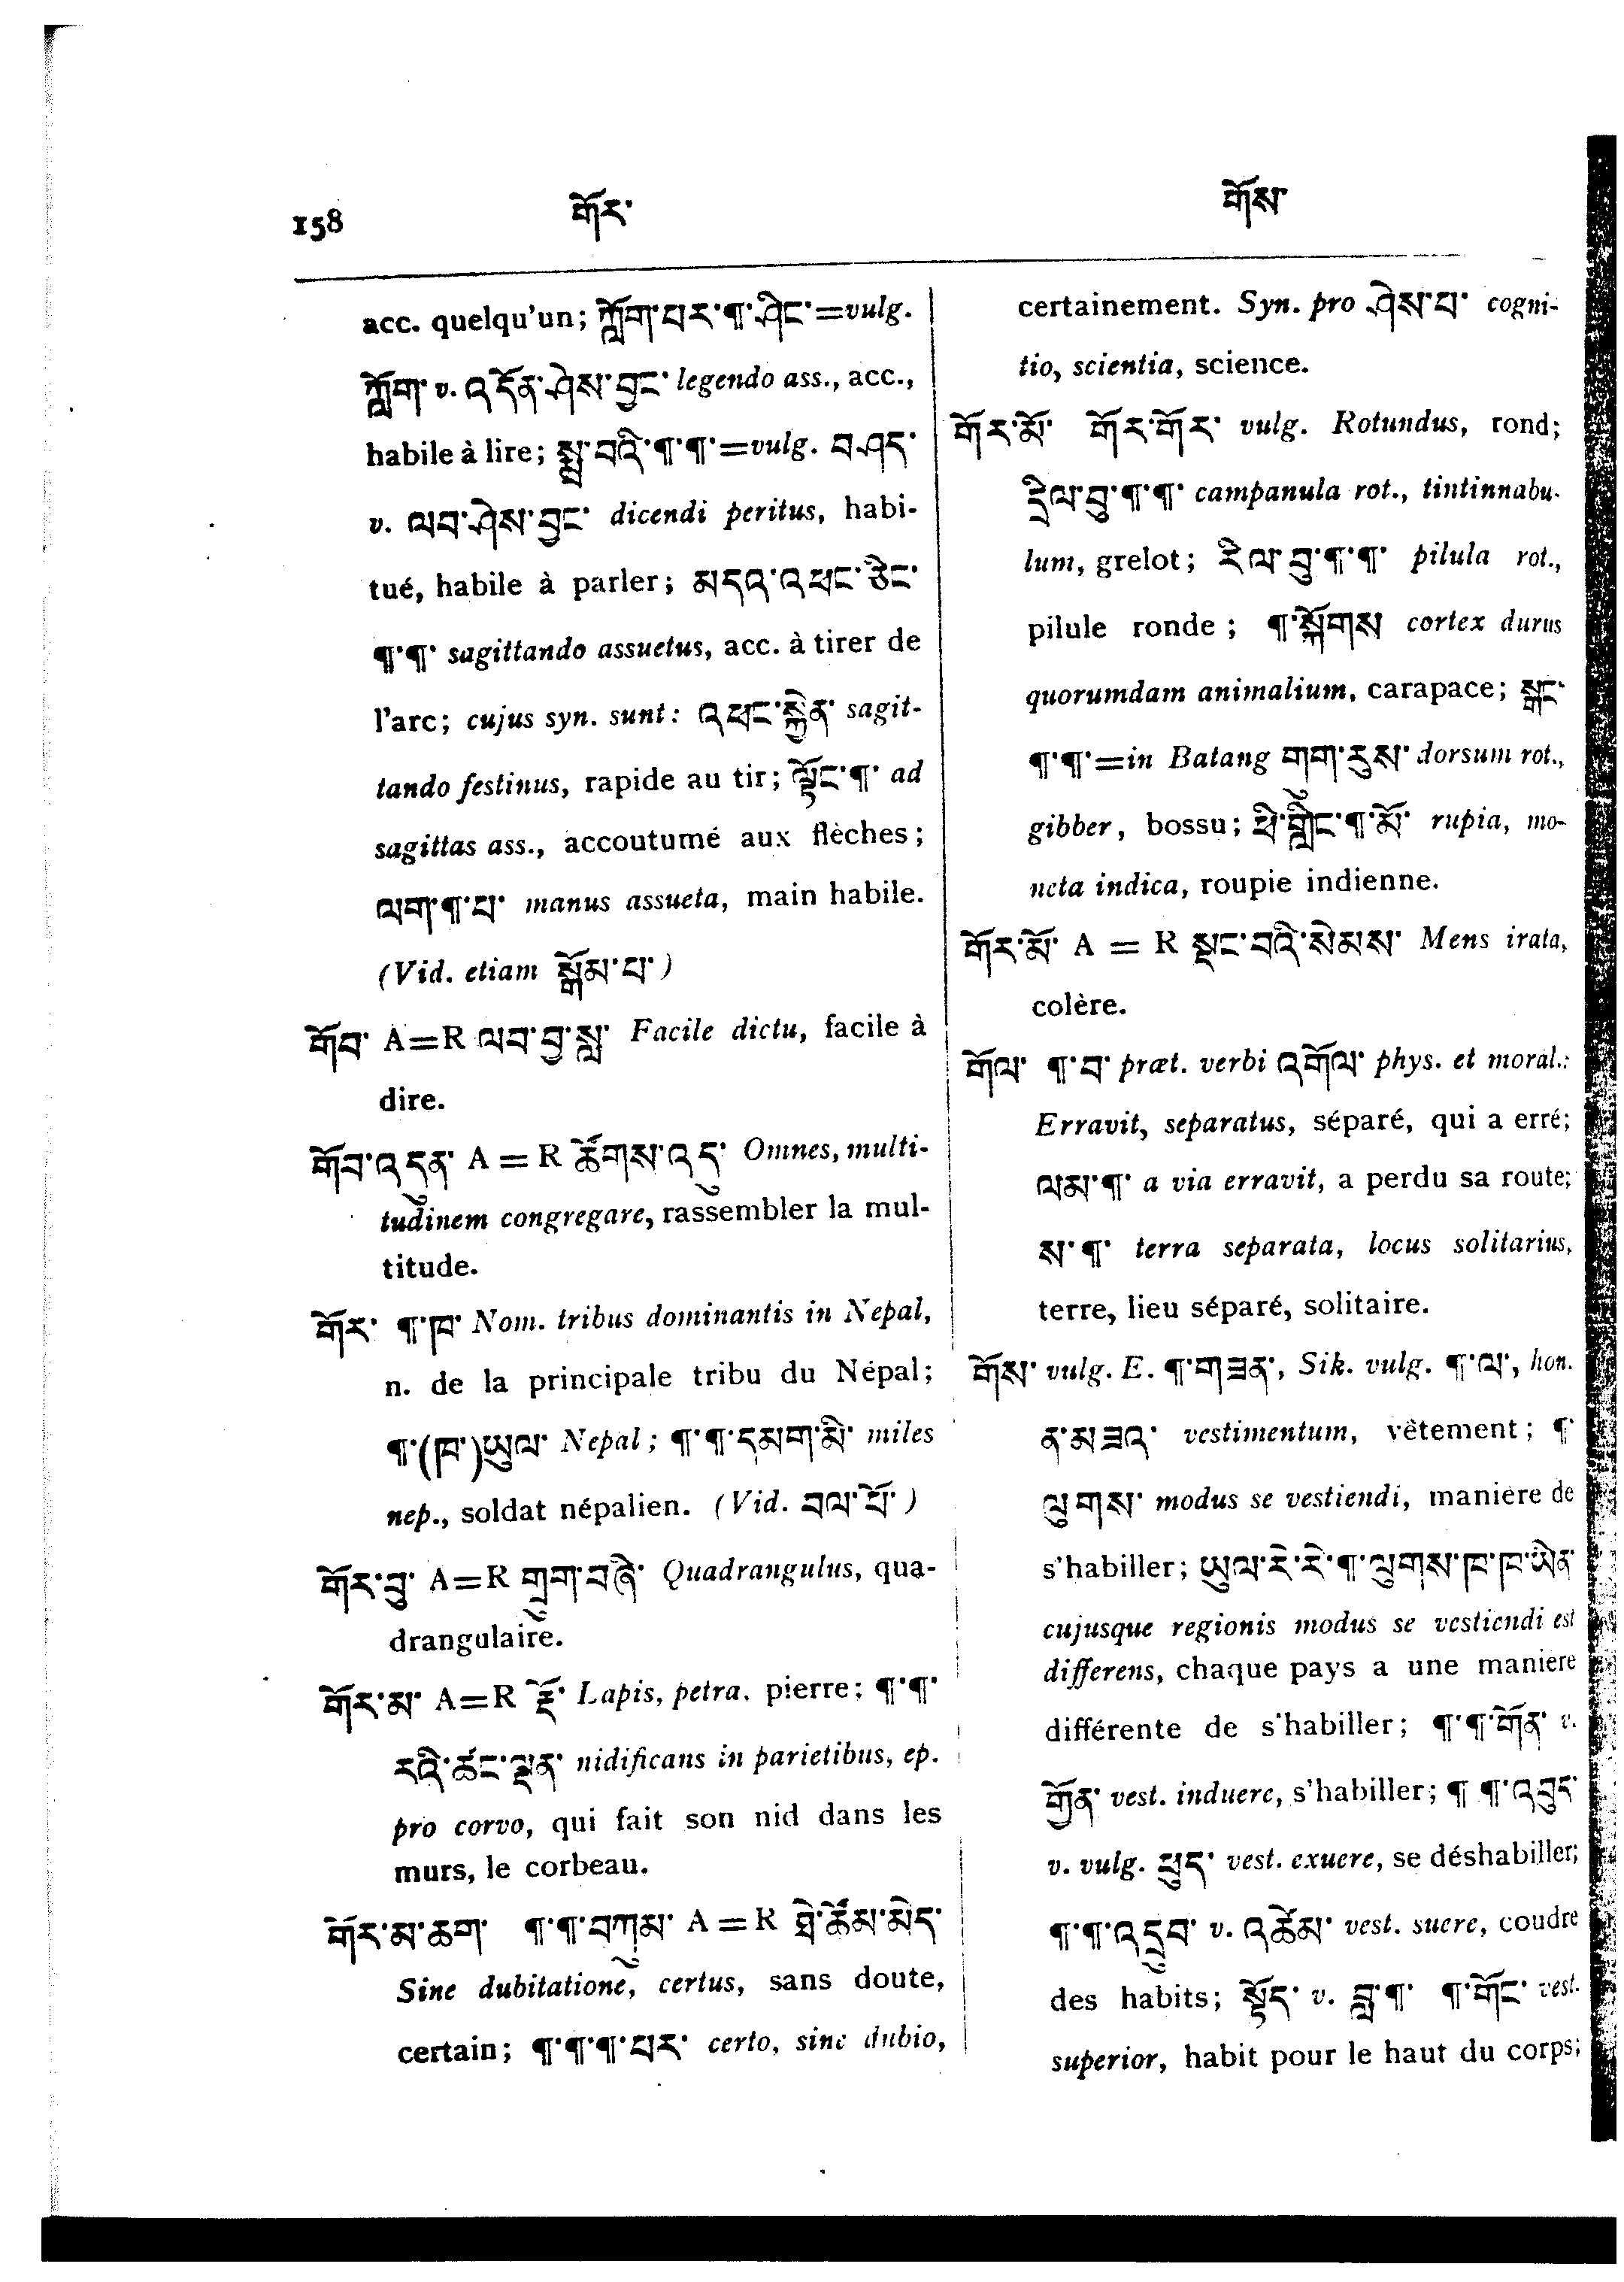 158 གོར་ གོས་
acc. quelqu'un; ཀློག་པར་¶་ཤིང་=vulg.
ཀློག་ v. འདོན་ཤེས་བྱང་ legendo ass., acc.,
habile à lire; སྨྲ་བའི་¶་¶་=vulg. བཤད་
v. ལབ་ཤེས་བྱང་ dicendi peritus, habi-
tué, habile à parler; མདའ་འཕང་ཅིང་
¶་¶་ sagittando assuetus, acc. à tirer de
l'arc; cujus syn. sunt: འཕང་སྐྱེན་ sagit-
tando festinus, rapide au tir; ལྟོང་¶་ ad
sagittas ass., accoutumé aux flèches;
ལག་¶་པ་ manus assueta, main habile.
(Vid. etiam སྒོམ་པ་)
གོབ་ A=R ལབ་བྱ་སླ་ Facile dictu, facile à
dire.
གོབ་འདུན་ A = R ཚོགས་འདུ་ Omnes, multi-
tudinem congregare, rassembler la mul-
titude.
གོར་ ¶་ཁ་ Nom. tribus dominantis in Nepal,
n. de la principale tribu du Népal;
¶་(ཁ་)ཡུལ་ Nepal; ¶་¶་དམག་མི་ miles
nep., soldat népalien. (Vid. བལ་པོ་)
གོར་བུ་ A=R གྲུག་བཞི་ Quadrangulus, qua-
drangulaire.
གོར་མ་ A=R རྡོ་ Lapis, petra, pierre; ¶་¶་
རའི་ཚང་ལྡན་ nidificans in parietibus, ep.
pro corvo, qui fait son nid dans les
murs, le corbeau.
གོར་མ་ཆག་ ¶་¶་བཀུམ་ A = R ཐེ་ཚོམ་མེད་
Sine dubitatione, certus, sans doute,
certain; ¶་¶་¶་པར་ certo, sine dubio,
certainement. Syn. pro ཤེས་པ་ cogni-
tio, scientia, science.
གོར་མོ་ གོར་གོར་ vulg. Rotundus, rond;
དྲིལ་བུ་¶་¶་ campanula rot., tintinnabu-
lum, grelot; རིལ་བུ་¶་¶་ pilula rot.,
pilule ronde; ¶་སྐོགས cortex durus
quorumdam animalium, carapace; སྒང་
¶་¶་=in Batang གག་རུས་ dorsum rot.,
gibber, bossu; ཕྱི་གླིང་¶་མོ་ rupia, mo-
neta indica, roupie indienne.
གོར་མོ་ A = R སྡང་བའི་སེམས་ Mens irata,
colère.
གོལ་ ¶་བ་ præt. verbi འགོལ་ phys. et moral.:
Erravit, separatus, séparé, qui a erré;
ལམ་¶་ a via erravit, a perdu sa route;
ས་¶་ terra separata, locus solitarius,
terre, lieu séparé, solitaire.
གོས་ vulg. E. ¶་གཟན་, Sik. vulg. ¶་ལ་, hon.
ན་མཟའ་ vestimentum, vêtement; ¶་
ལུགས་ modus se vestiendi, manière de
s'habiller; ཡུལ་རེ་རེ་¶་ལུགས་ཁ་ཁ་ཡིན་
cujusque regionis modus se vestiendi est
differens, chaque pays a une manière
différente de s'habiller; ¶་¶་གོན་ v.
གྱོན་ vest. induere, s'habiller; ¶ ¶་འབུད་
v. vulg. ཕུད་ vest. exuere, se déshabiller;
¶་¶་འདྲུབ་ v. འཚེམ་ vest. suere, coudre
des habits; སྟོད་ v. བླ་¶་ ¶་གོང་ vest.
superior, habit pour le haut du corps;